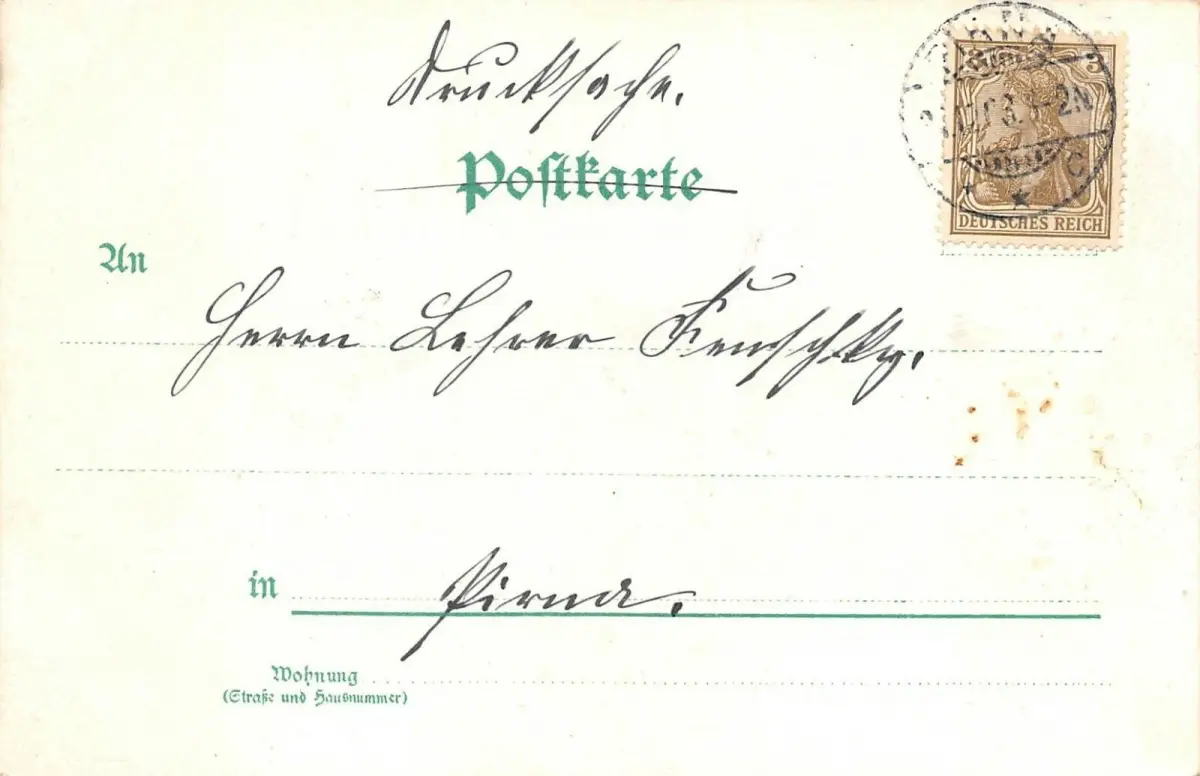 Drucksache.
Postkarte
3
DEUTSCHES REICH
An
Herrn Lehrer
in Pirna.
Wohnung
(Straße und Hausnummer)